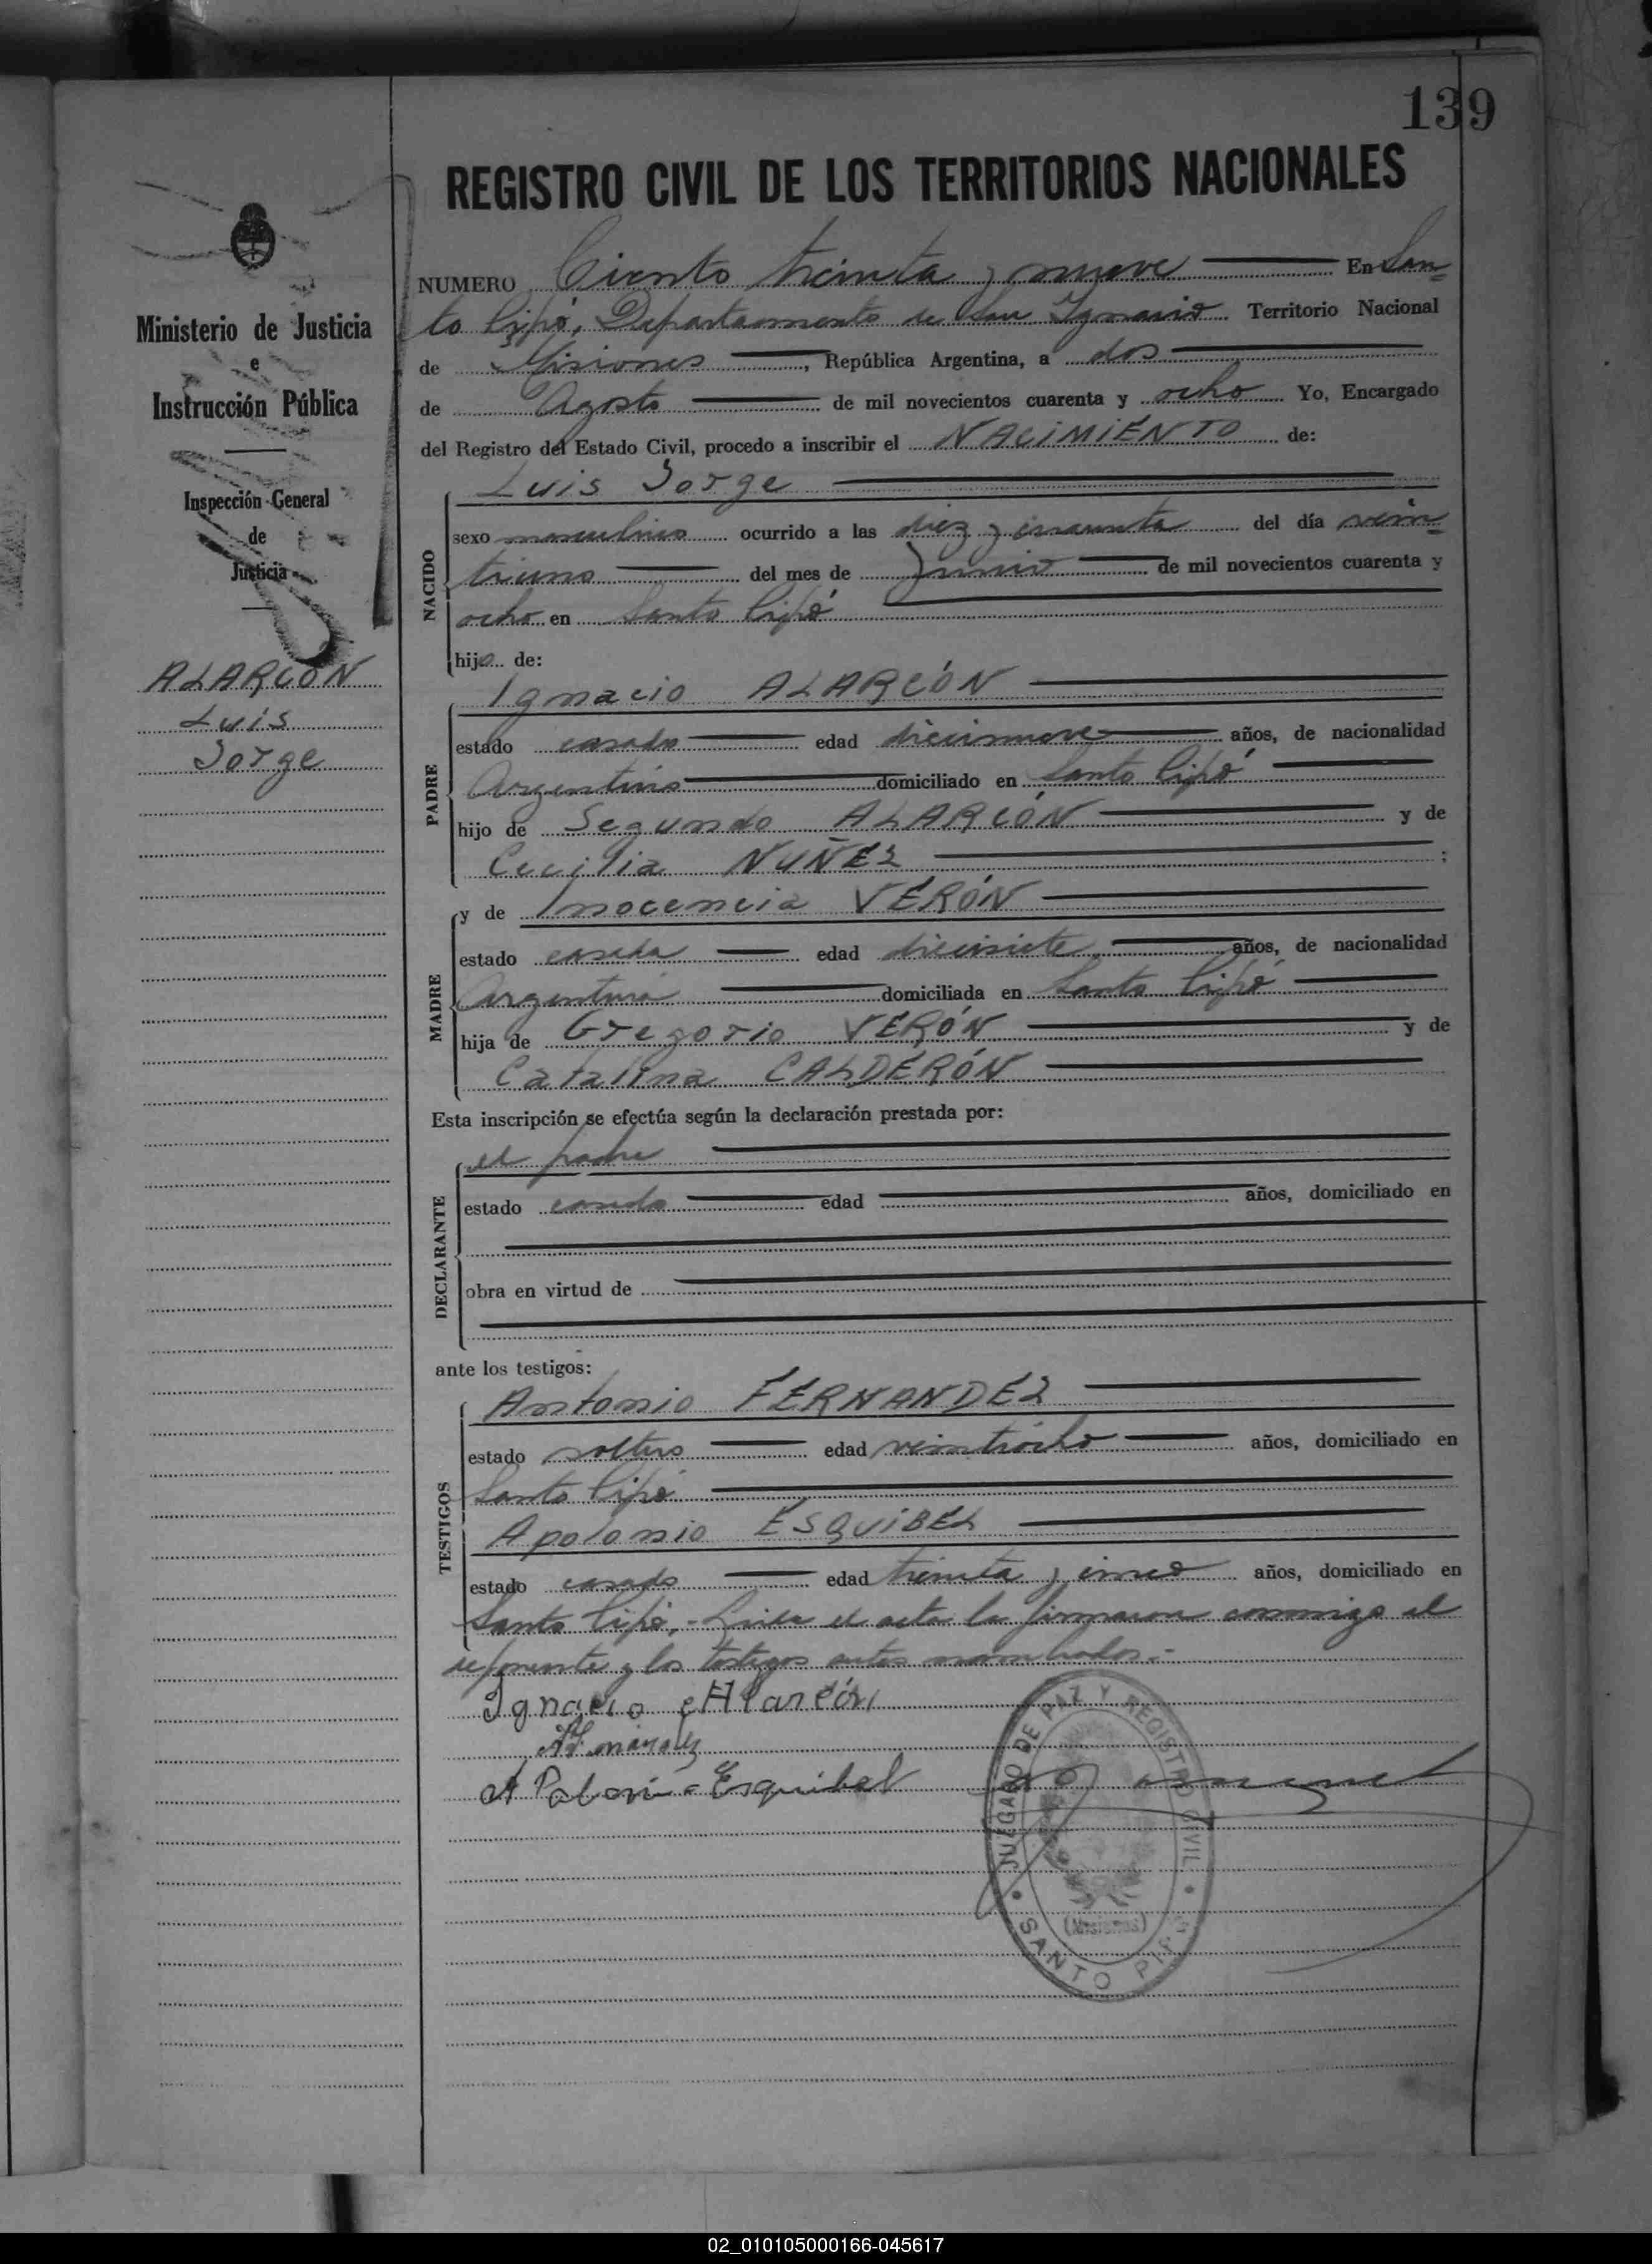 139
REGISTRO CIVIL DE LOS TERRITORIOS NACIONALES
Ministerio de Justicia
e
Instrucción Pública
Inspección General
de
Justicia
ALARCÓN
Luis
Jorge
NUMERO Ciento treinta y nueve En San=
to Pipó, Departamento de San Ignacio Territorio Nacional
de Misiones, República Argentina, a dos
de Agosto de mil novecientos cuarenta y ocho Yo, Encargado
del Registro del Estado Civil, procedo a inscribir el NACIMIENTO de:
NACIDO
Luis Jorge
sexo masculino ocurrido a las diez y cincuenta del día vein=
tiuno del mes de Junio de mil novecientos cuarenta y
ocho en Santo Pipó
hijo de:
PADRE
Ignacio ALARCÓN
estado casado edad diecinueve años, de nacionalidad
Argentino domiciliado en Santo Pipó
hijo de Segundo ALARCÓN y de
Cecilia NUÑEZ ;
MADRE
y de Inocencia VERÓN
estado casada edad diecisiete años, de nacionalidad
Argentina domiciliada en Santo Pipó
hija de Gregorio VERÓN y de
Catalina CALDERÓN
Esta inscripción se efectúa según la declaración prestada por:
DECLARANTE
el padre
estado casado edad años, domiciliado en
obra en virtud de
ante los testigos:
TESTIGOS
Antonio FERNANDEZ
estado soltero edad veintiocho años, domiciliado en
Santo Pipó
Apolonio ESQUIBEL
estado casado edad treinta y cinco años, domiciliado en
Santo Pipó.- Leída el acta la firmaron conmigo el
deponente y los testigos antes nombrados.-
Ignacio Alarcón
APolonio Esquibel
JUZGADO DE PAZ Y REGISTRO CIVIL
(Misiones)
SANTO PIPÓ
02_010105000166-045617